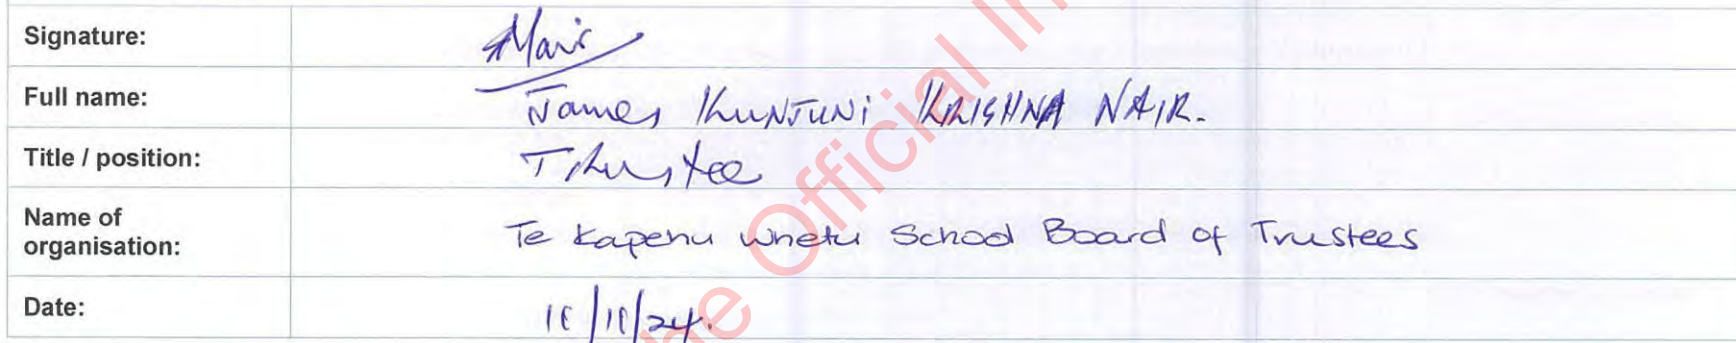 Signature: Nair
Full name: James KUNJUNI KRISHNA NAIR.
Title / position: Trustee
Name of
organisation: Te Kapehu Whetu School Board of Trustees
Date: 11/11/24.
the Official In